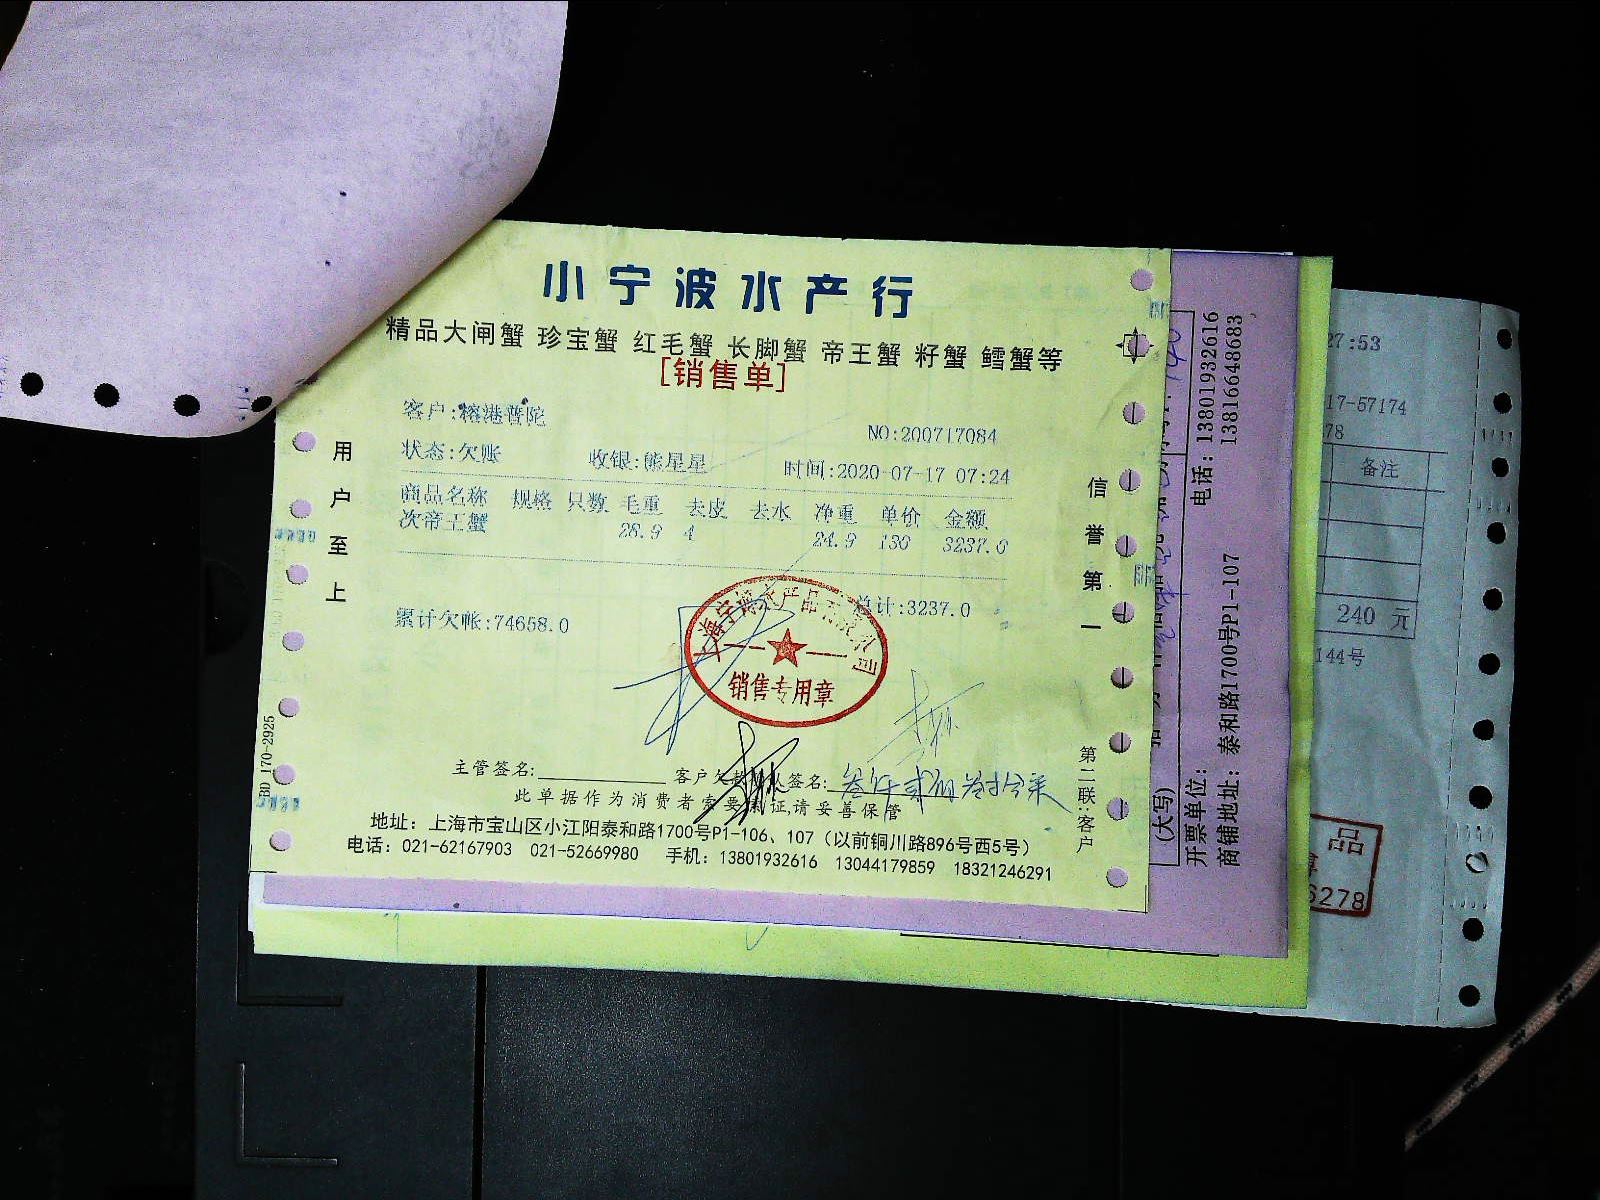 小宁波水产行
精品大闸蟹 珍宝蟹 红毛蟹 长脚蟹 帝王蟹 籽蟹 鳕蟹等
[销售单]
客户:榕港普陀
NO:200717084
状态:欠账 收银:熊星星 时间:2020-07-17 07:24
商品名称 规格 只数 毛重 去皮 去水 净重 单价 金额
次帝王蟹 28.9 4 24.9 130 3237.0
总计:3237.0
累计欠帐:74658.0
销售专用章
主管签名: 客户欠款 人签名:
叁仟贰佰叁拾柒
此单据作为消费者索要 证,请妥善保管
地址：上海市宝山区小江阳泰和路1700号P1-106、107（以前铜川路896号西5号）
电话：021-62167903 021-52669980 手机：13801932616 13044179859 18321246291
用户至上
信誉第一
第二联:客户
BD 170-2925
电话：13801932616
13816648683
(大写)
开票单位：
商铺地址：泰和路1700号P1-107
27:53
17-57174
78
备注
240 元
144号
品
6278